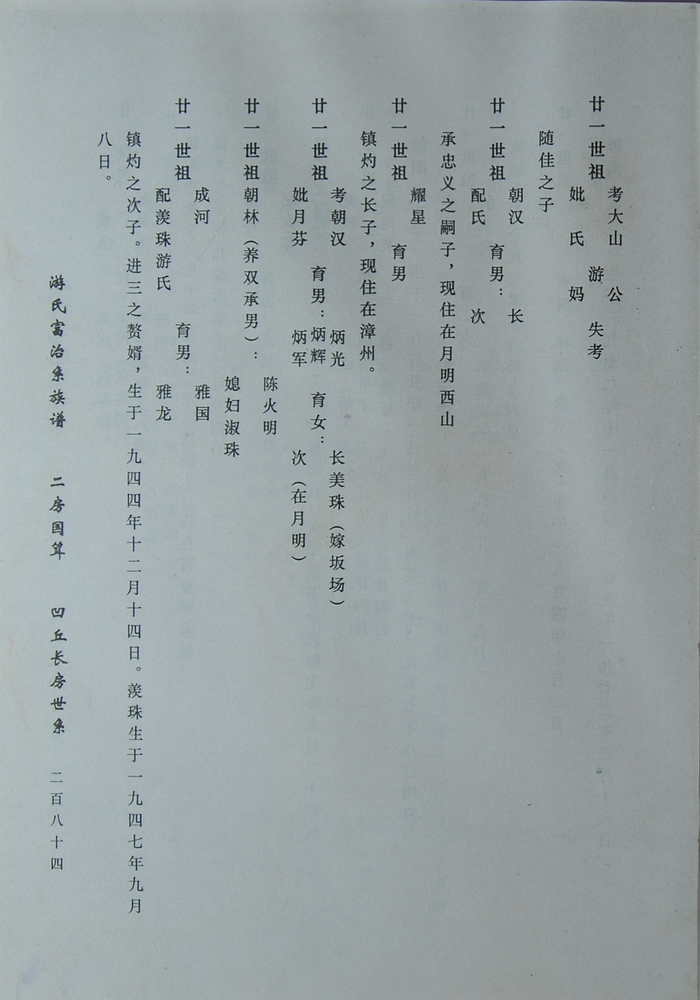 廿一世祖
考大山 公
游 失考
妣 氏 妈
随佳之子
廿一世祖
朝汉 长
育男：
配氏 次
承忠义之嗣子，现住在月明西山
廿一世祖
耀星
育男
镇灼之长子，现住在漳州。
廿一世祖
考朝汉 炳光 长美珠（嫁坂场）
育男：炳辉 育女：
妣月芬 炳军 次（在月明）
廿一世祖朝林（养双承男）：
陈火明
媳妇淑珠
廿一世祖
成河 雅国
育男：
配羡珠游氏 雅龙
镇灼之次子。进三之赘婿，生于一九四四年十二月十四日。羡珠生于一九四七年九月
八日。
游氏富治系族谱 二房国算 凹丘长房世系 二百八十四